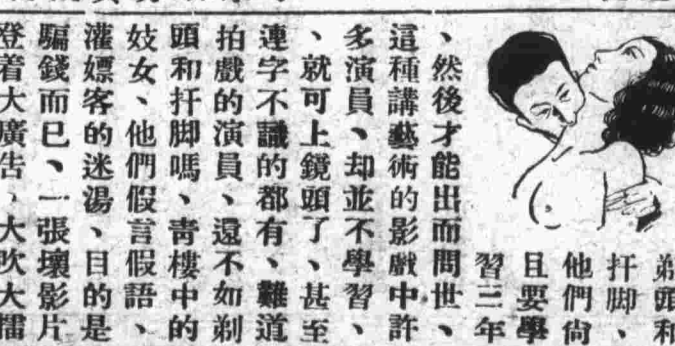 剃頭和
扦脚、
他們尙
且要學
習三年
、然後才能出而問世、
這種講藝術的影戲中許
多演員、却並不學習、
、就可上鏡頭了、甚至
連字不識的都有、難道
拍戲的演員、還不如剃
頭和扦脚嗎、靑樓中的
妓女、他們假言假語、
灌嫖客的迷湯、目的是
騙錢而已、一張壞影片
登着大廣告、大吹大擂